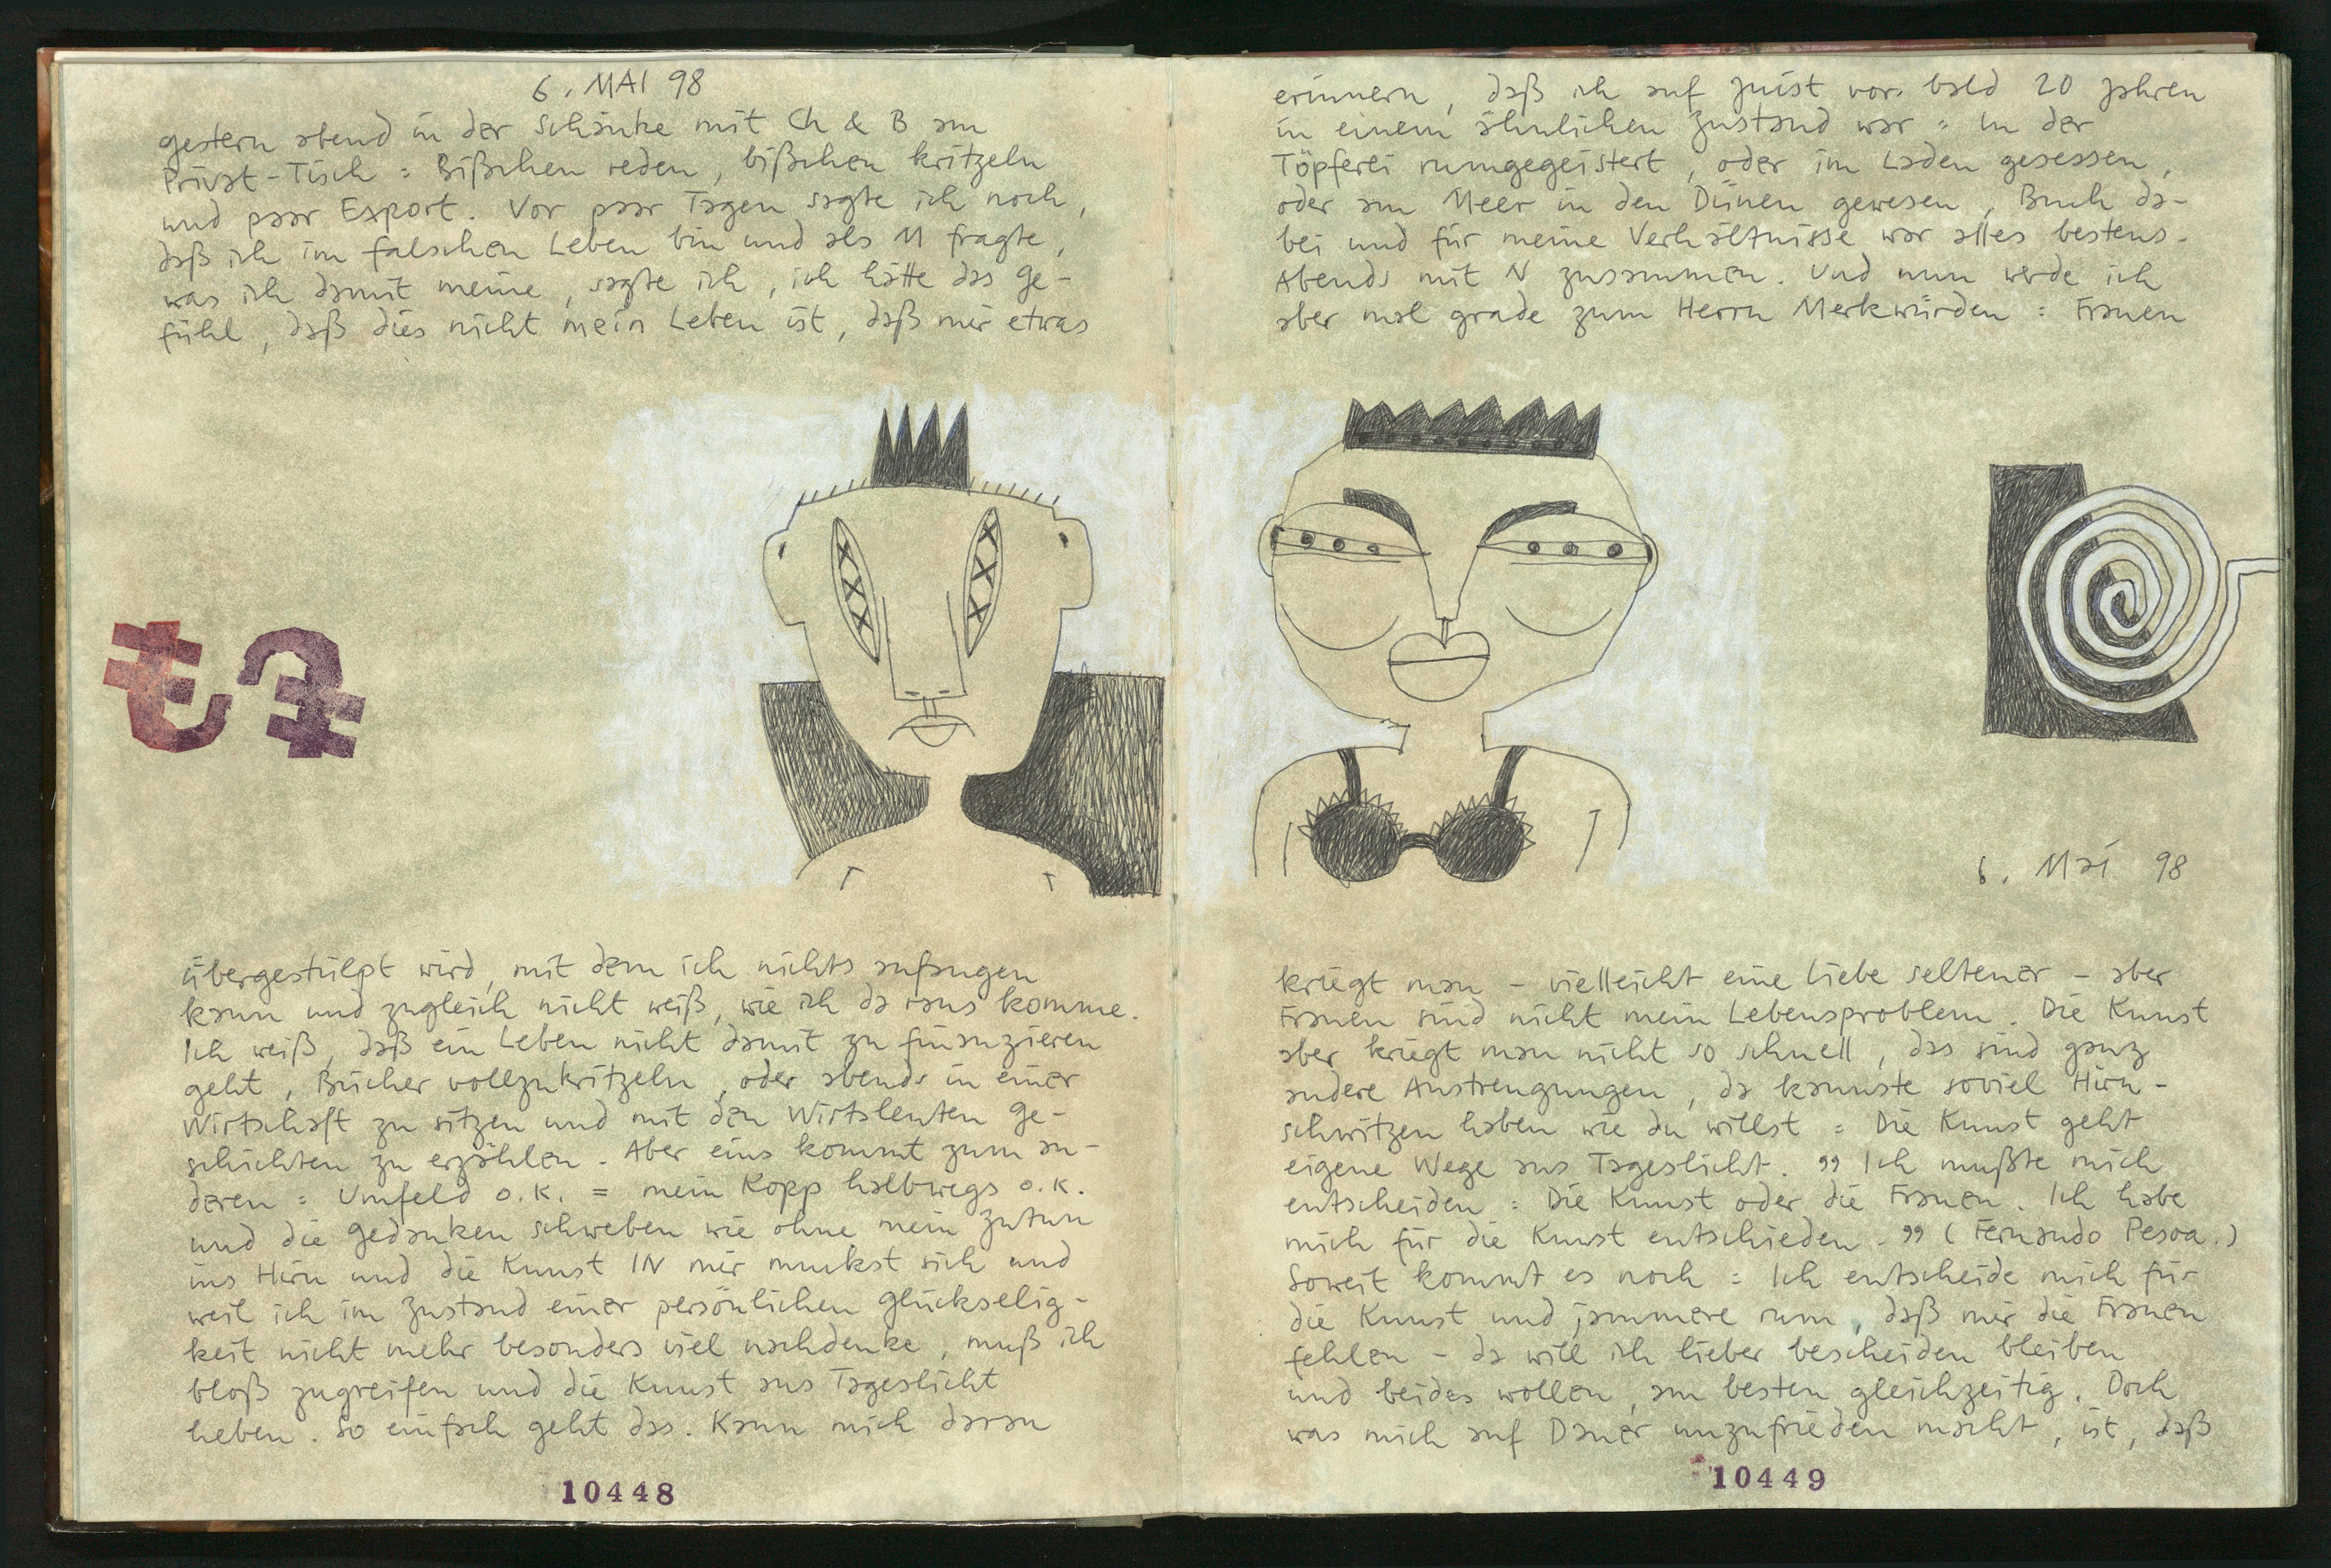 6. MAI 98
gestern abend in der Schänke mit Ch & B am
Privat-Tisch = Bißchen reden, bißchen kritzeln
und paar Export. Vor paar Tagen sagte ich noch,
daß ich im falschen Leben bin und als M fragte,
was ich damit meine, sagte ich, ich hätte das Ge-
fühl, daß dies nicht mein Leben ist, daß mir etwas
übergestülpt wird, mit dem ich nichts anfangen
kann und zugleich nicht weiß, wie ich da raus komme.
Ich weiß, daß ein Leben nicht damit zu finanzieren
geht, Bücher vollzukritzeln, oder abends in einer
Wirtschaft zu sitzen und mit den Wirtsleuten Ge-
schichten zu erzählen. Aber eins kommt zum an-
deren = Umfeld o.k. = mein Kopp halbwegs o.k.
und die Gedanken schweben wie ohne mein Zutun
ins Hirn und die Kunst IN mir muckst sich und
weil ich im Zustand einer persönlichen Glückselig-
keit nicht mehr besonders viel nachdenke, muß ich
bloß zugreifen und die Kunst ans Tageslicht
heben. So einfach geht das. Kann mich daran
10448
erinnern, daß ich auf Juist vor bald 20 Jahren
in einem ähnlichen Zustand war = in der
Töpferei rumgegeistert, oder im Laden gesessen,
oder am Meer in den Dünen gewesen, Buch da-
bei und für meine Verhältnisse war alles bestens.
Abends mit N zusammen. Und nun werde ich
aber mal grade zum Herrn Merkwürden = Frauen
6. Mai 98
kriegt man - vielleicht eine Liebe seltener - aber
Frauen sind nicht mein Lebensproblem. Die Kunst
aber kriegt man nicht so schnell, das sind ganz
andere Anstrengungen, da kannste soviel Hirn-
schwitzen haben wie du willst = Die Kunst geht
eigene Wege ans Tageslicht. " Ich mußte mich
entscheiden = Die Kunst oder die Frauen. Ich habe
mich für die Kunst entschieden. " (Fernando Pesoa.)
Soweit kommt es noch = Ich entscheide mich für
die Kunst und jammere rum, daß mir die Frauen
fehlen - da will ich lieber bescheiden bleiben
und beides wollen, am besten gleichzeitig. Doch
was mich auf Dauer unzufrieden macht, ist, daß
10449